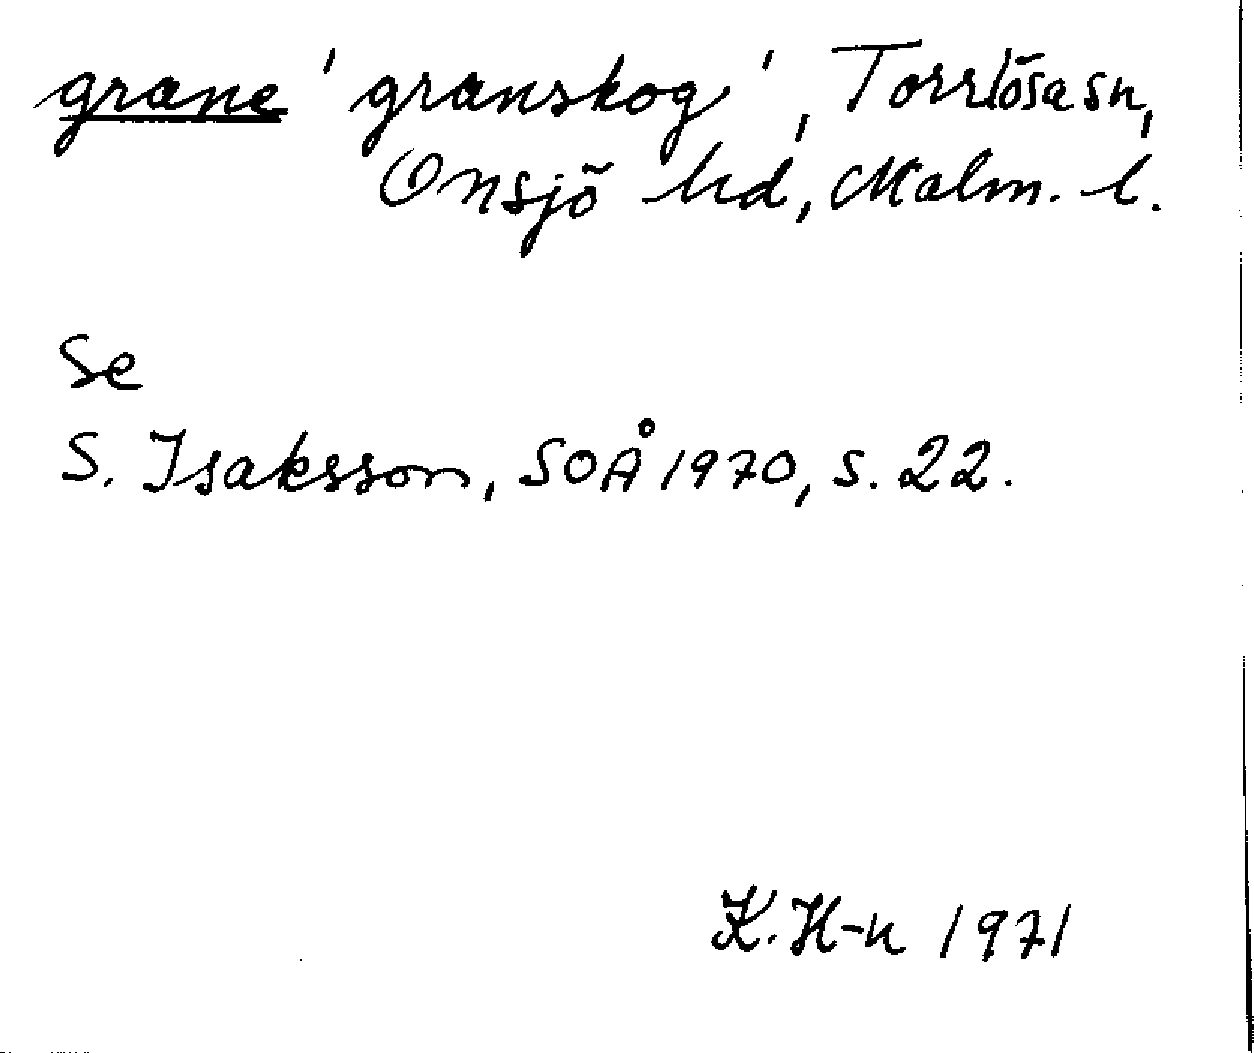 grane 'granskog', Torrlösa sn,
Onsjö hd, Malm. l.
Se
S. Isaksson, SOÅ 1970, s. 22.
K. H-n 1971